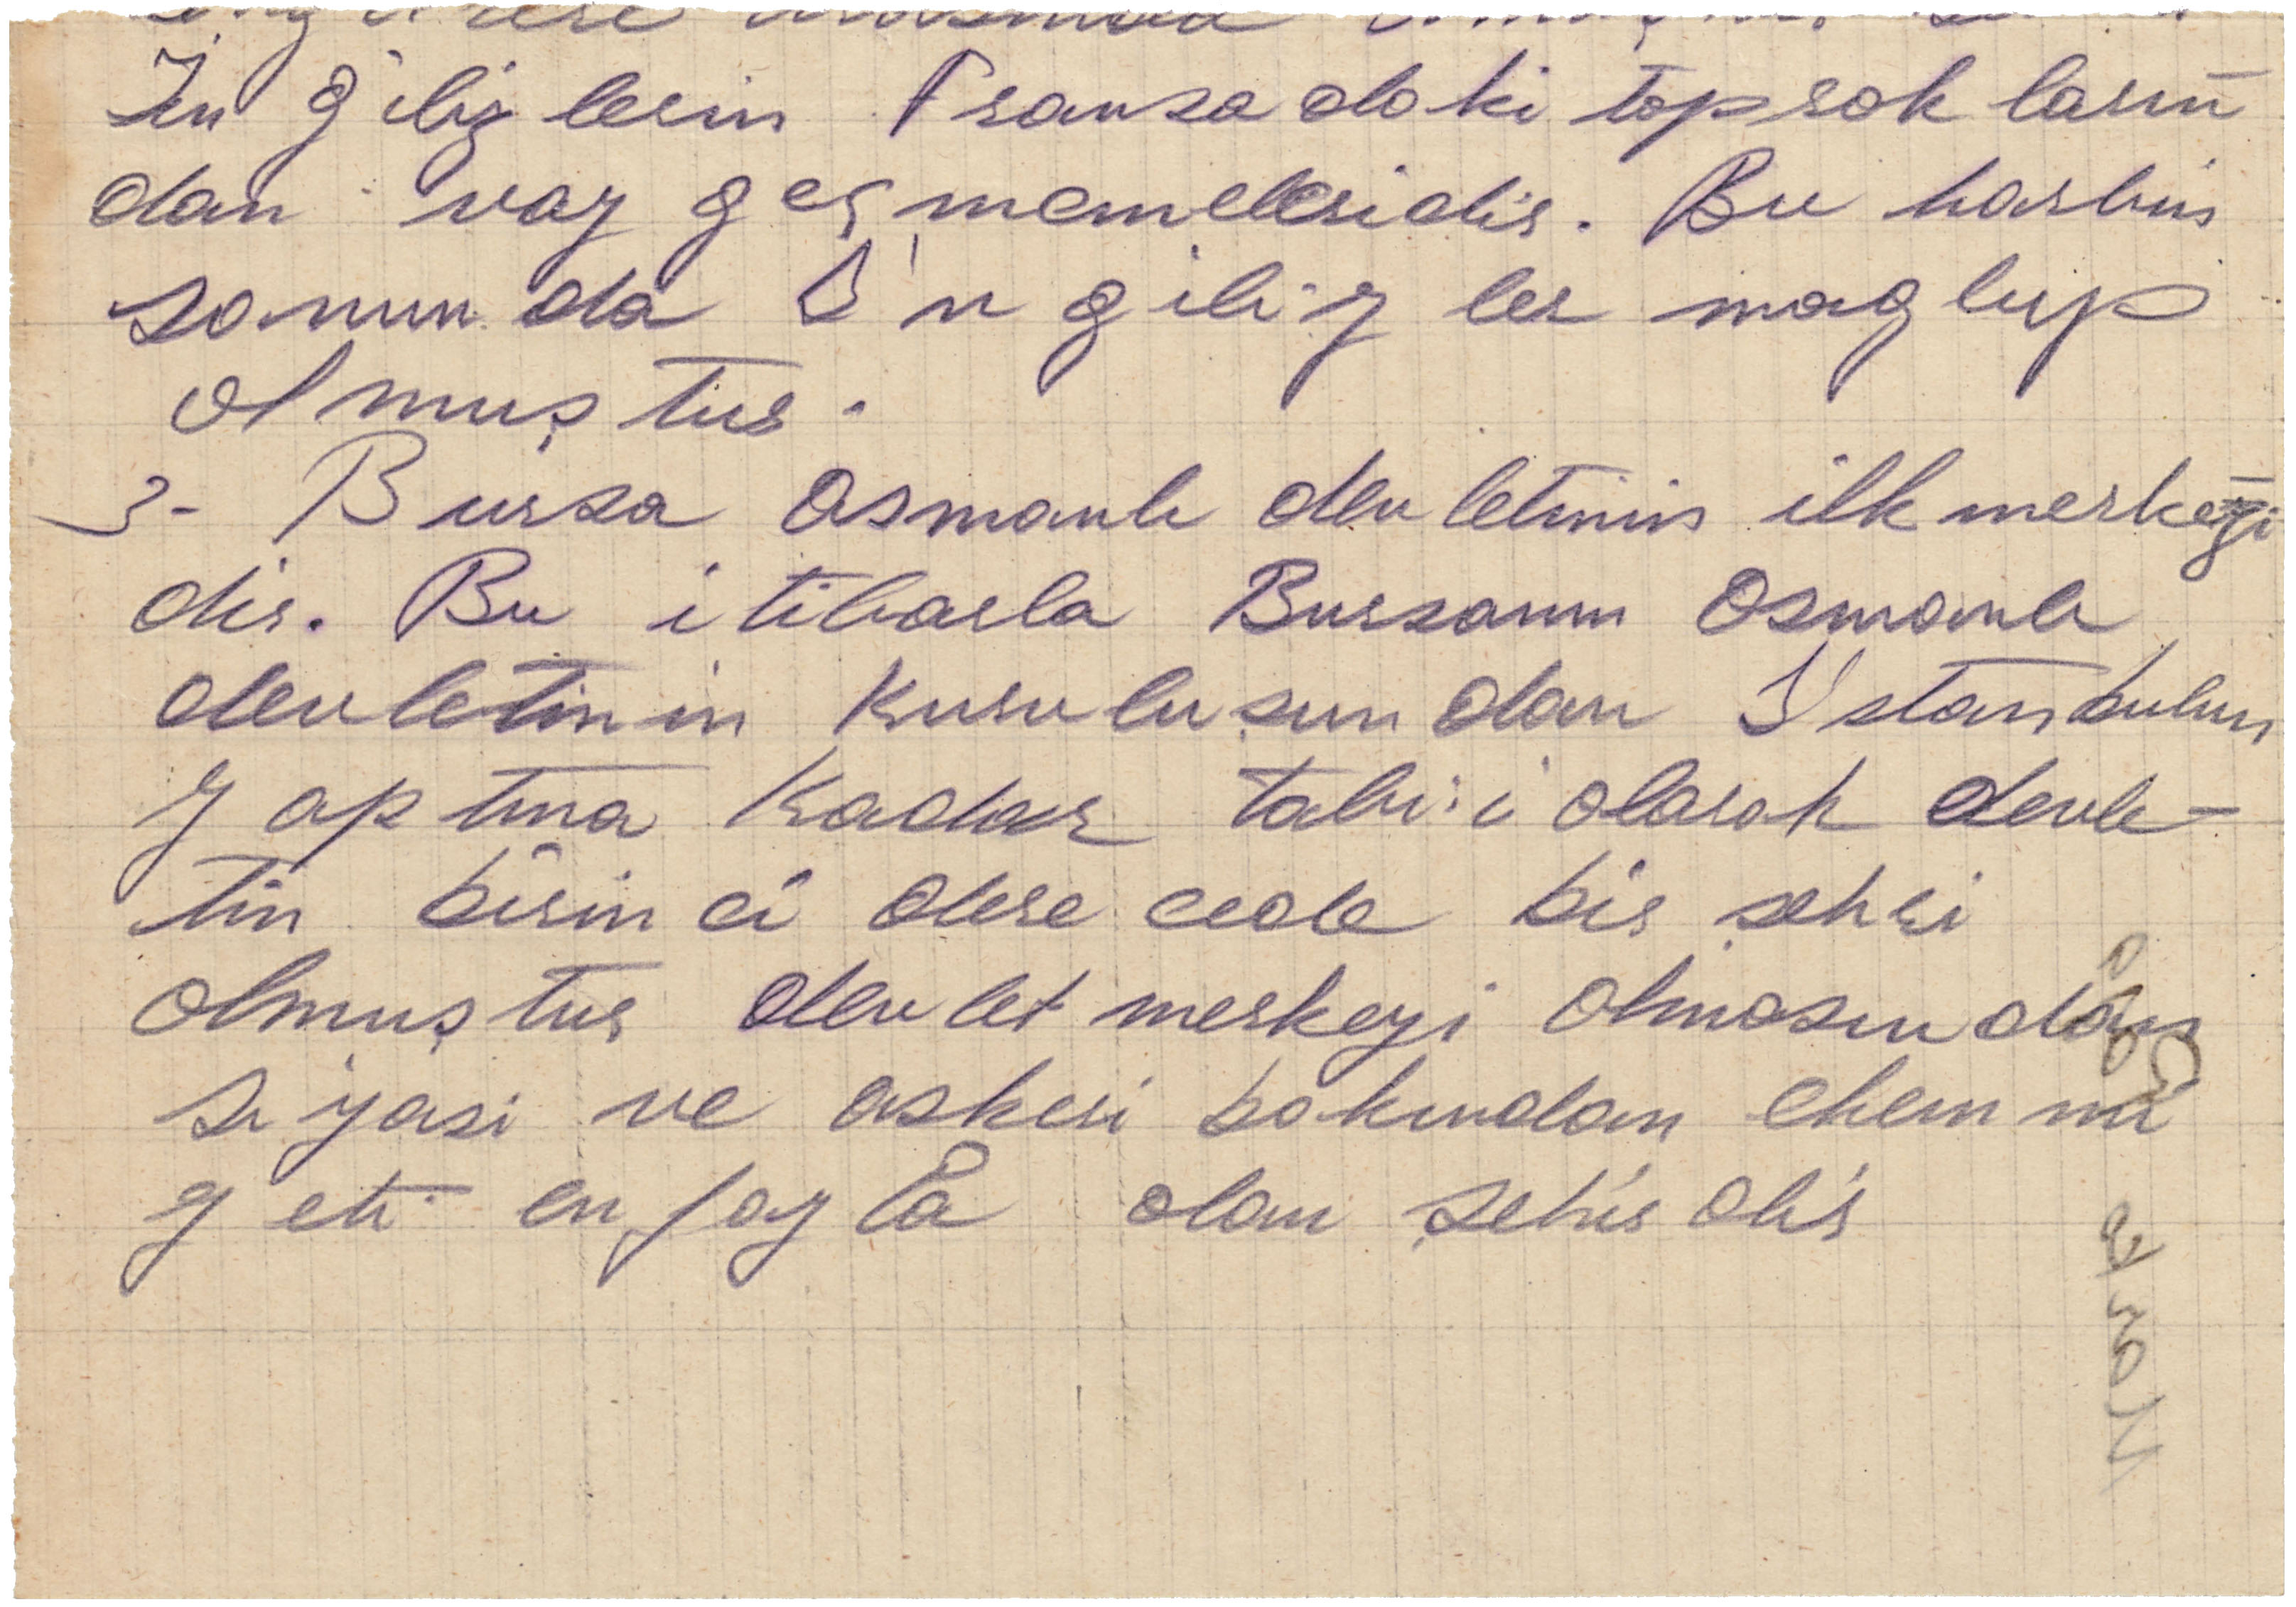 İngilizlerin Fransadaki toprakların
dan vaz geçmemeleridir. Bu harbin
sonunda İngilizler maglup
olmuştur.
3- Bursa Osmanlı devletinin ilk merkezi
dir. Bu itibarla Bursanın Osmanlı
devletinin kuruluşundan İstanbulun
zaptına kadar tabi:i olarak devle-
tin birinci derecede bir şehri
olmuştur devlet merkezi olmasından
siyasi ve askeri bakımdan ehemmi
yeti en fazla olan şehirdir